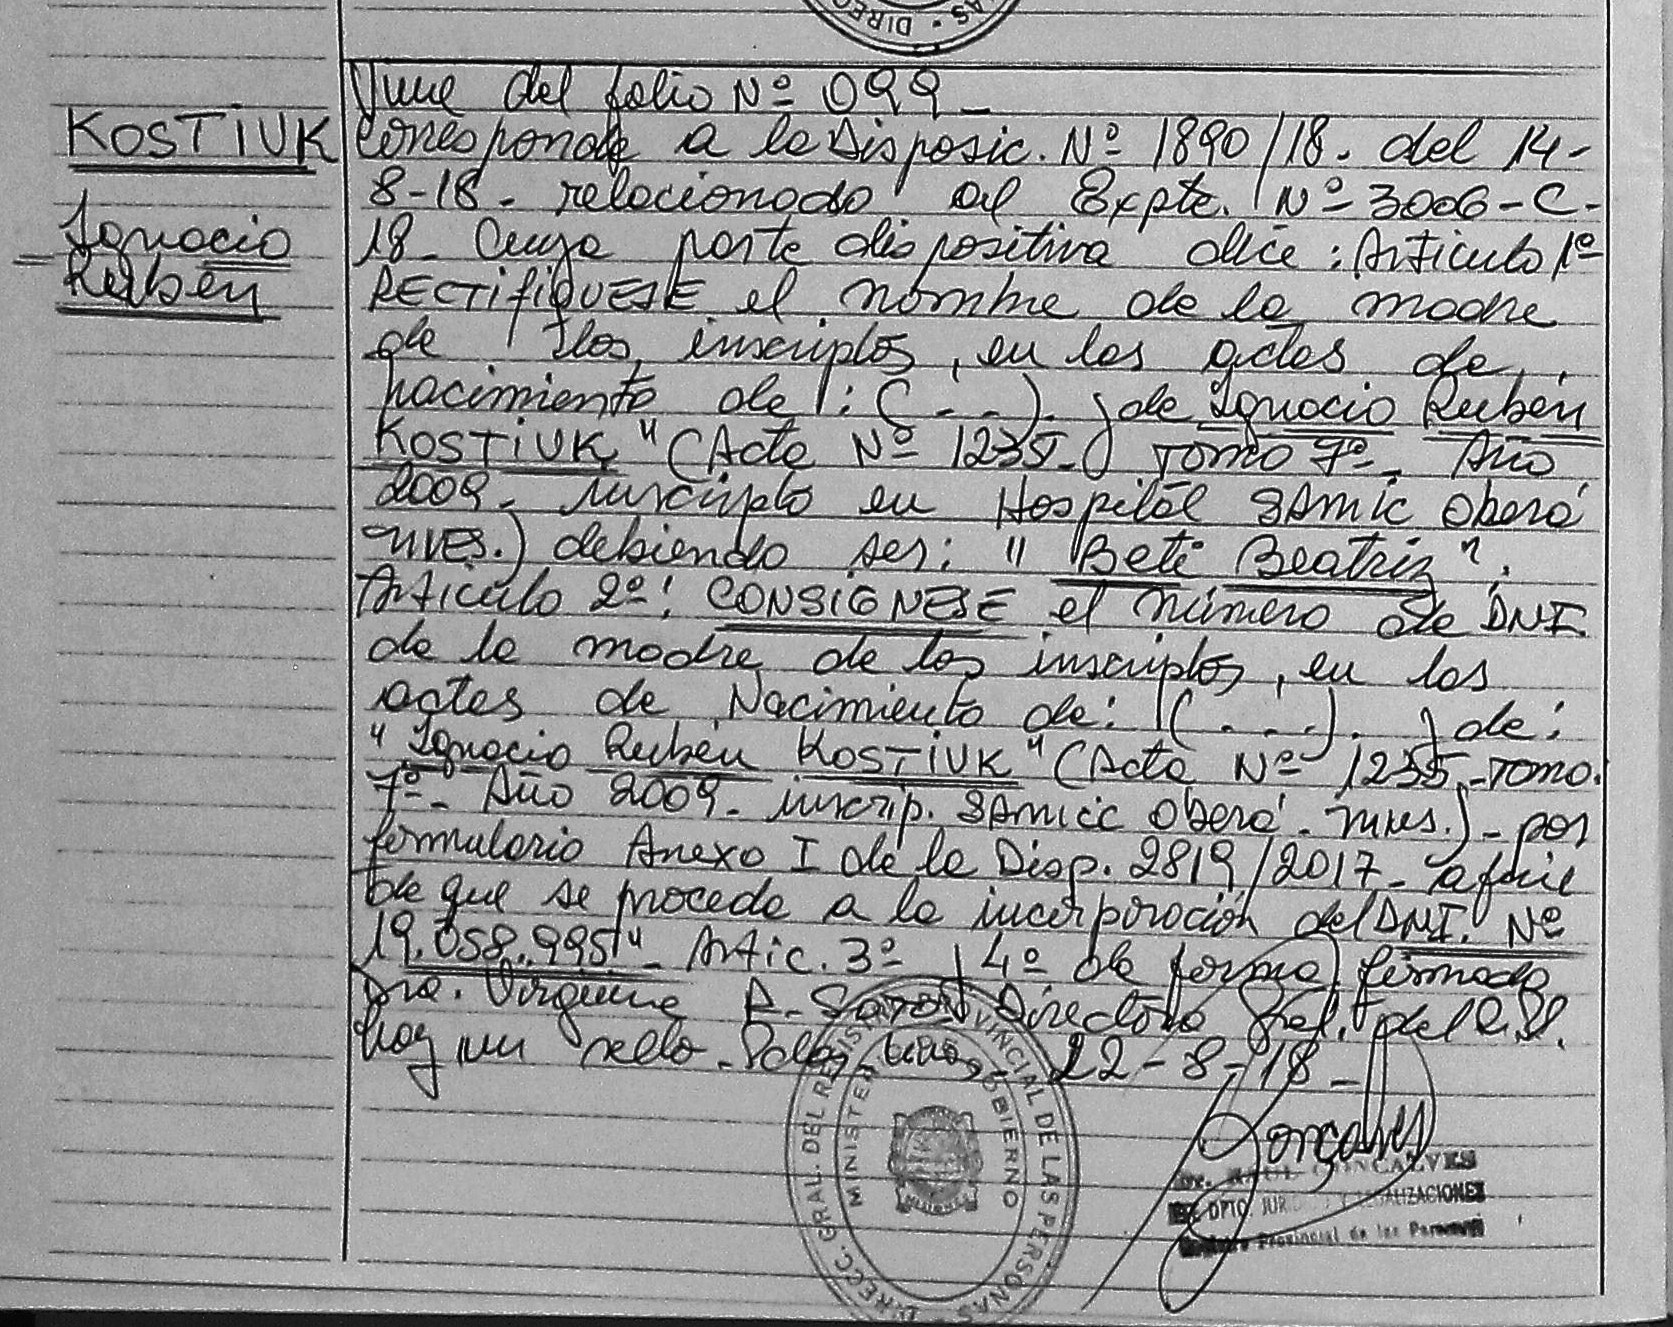 DIRECC
Viene del folio Nº 099_
KOSTIUK
Corresponde a la Disposic. Nº 1890/18. del 14-
8-18- relacionado al Expte. Nº 3006-C-
Ignacio
18- Cuya parte dispositiva dice: Articulo 1º
Rubén
RECTIFIQUESE el nombre de la madre
de los inscriptos, en las actas de
nacimiento de: (- - -). y de Ignacio Rubén
KOSTIUK" (Acta Nº 1235-) Tomo 7º- Año
2009- inscripto en Hospital SAMIC Oberá
MNES.) debiendo ser: "Beti Beatriz".
Articulo 2º: CONSIGNESE el número de DNI.
de la madre de los inscriptos, en las
actas de Nacimiento de: (- - -). y de:
"Ignacio Rubén KOSTIUK" (Acta Nº 1235-Tomo.
7º- Año 2009- inscrip. SAMIC Oberá- Mnes.)- por
formulario Anexo I de la Disp. 2819/2017- a fin
de que se proceda a la incorporación del DNI. Nº
19.058.995"- Artic. 3º y 4º de forma, firmado
Dra. R. Directora Gral. del R.P.
hay un sello- 22-8-18-
DIRECC. GRAL. DEL REGISTRO PROVINCIAL DE LAS PERSONAS
MINISTERIO GOBIERNO
Gonçalves
GONCALVES
DPTO. JUR Y LEGALIZACIONES
Provincial de las Personas